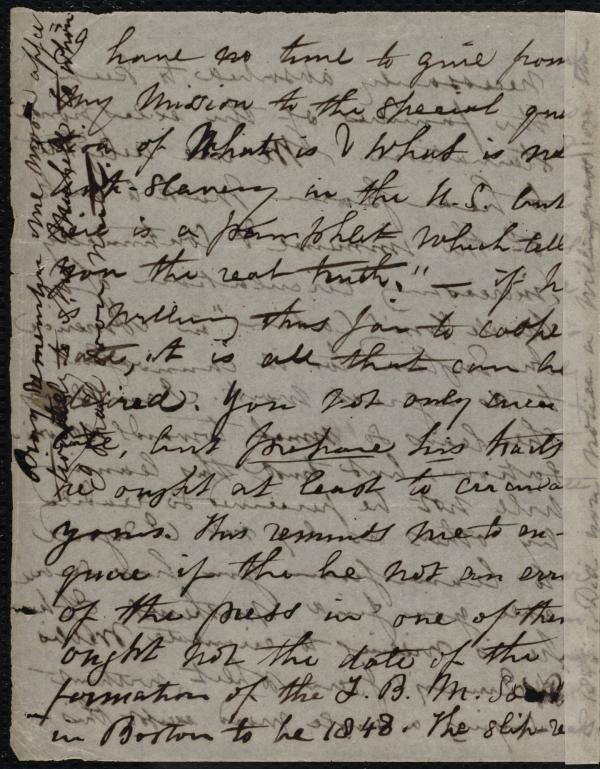 I have no time to give from
my Mission to the special que
tion of What is & What is no
anti-slavery in the U.S. but
here is a pamphlet which tell
you the real truth." — if h
is willing thus far to coope
rate, it is all that can be
desired. You not only
but prepare his tracts
he ought at least to circula
yours. This reminds me to en-
quire if there be not an erro
of the press in one of them
ought not the date of the
formation of the F. B. M. So
in Boston to be 1843. The slip-
Pray remember me most affec
tionately to